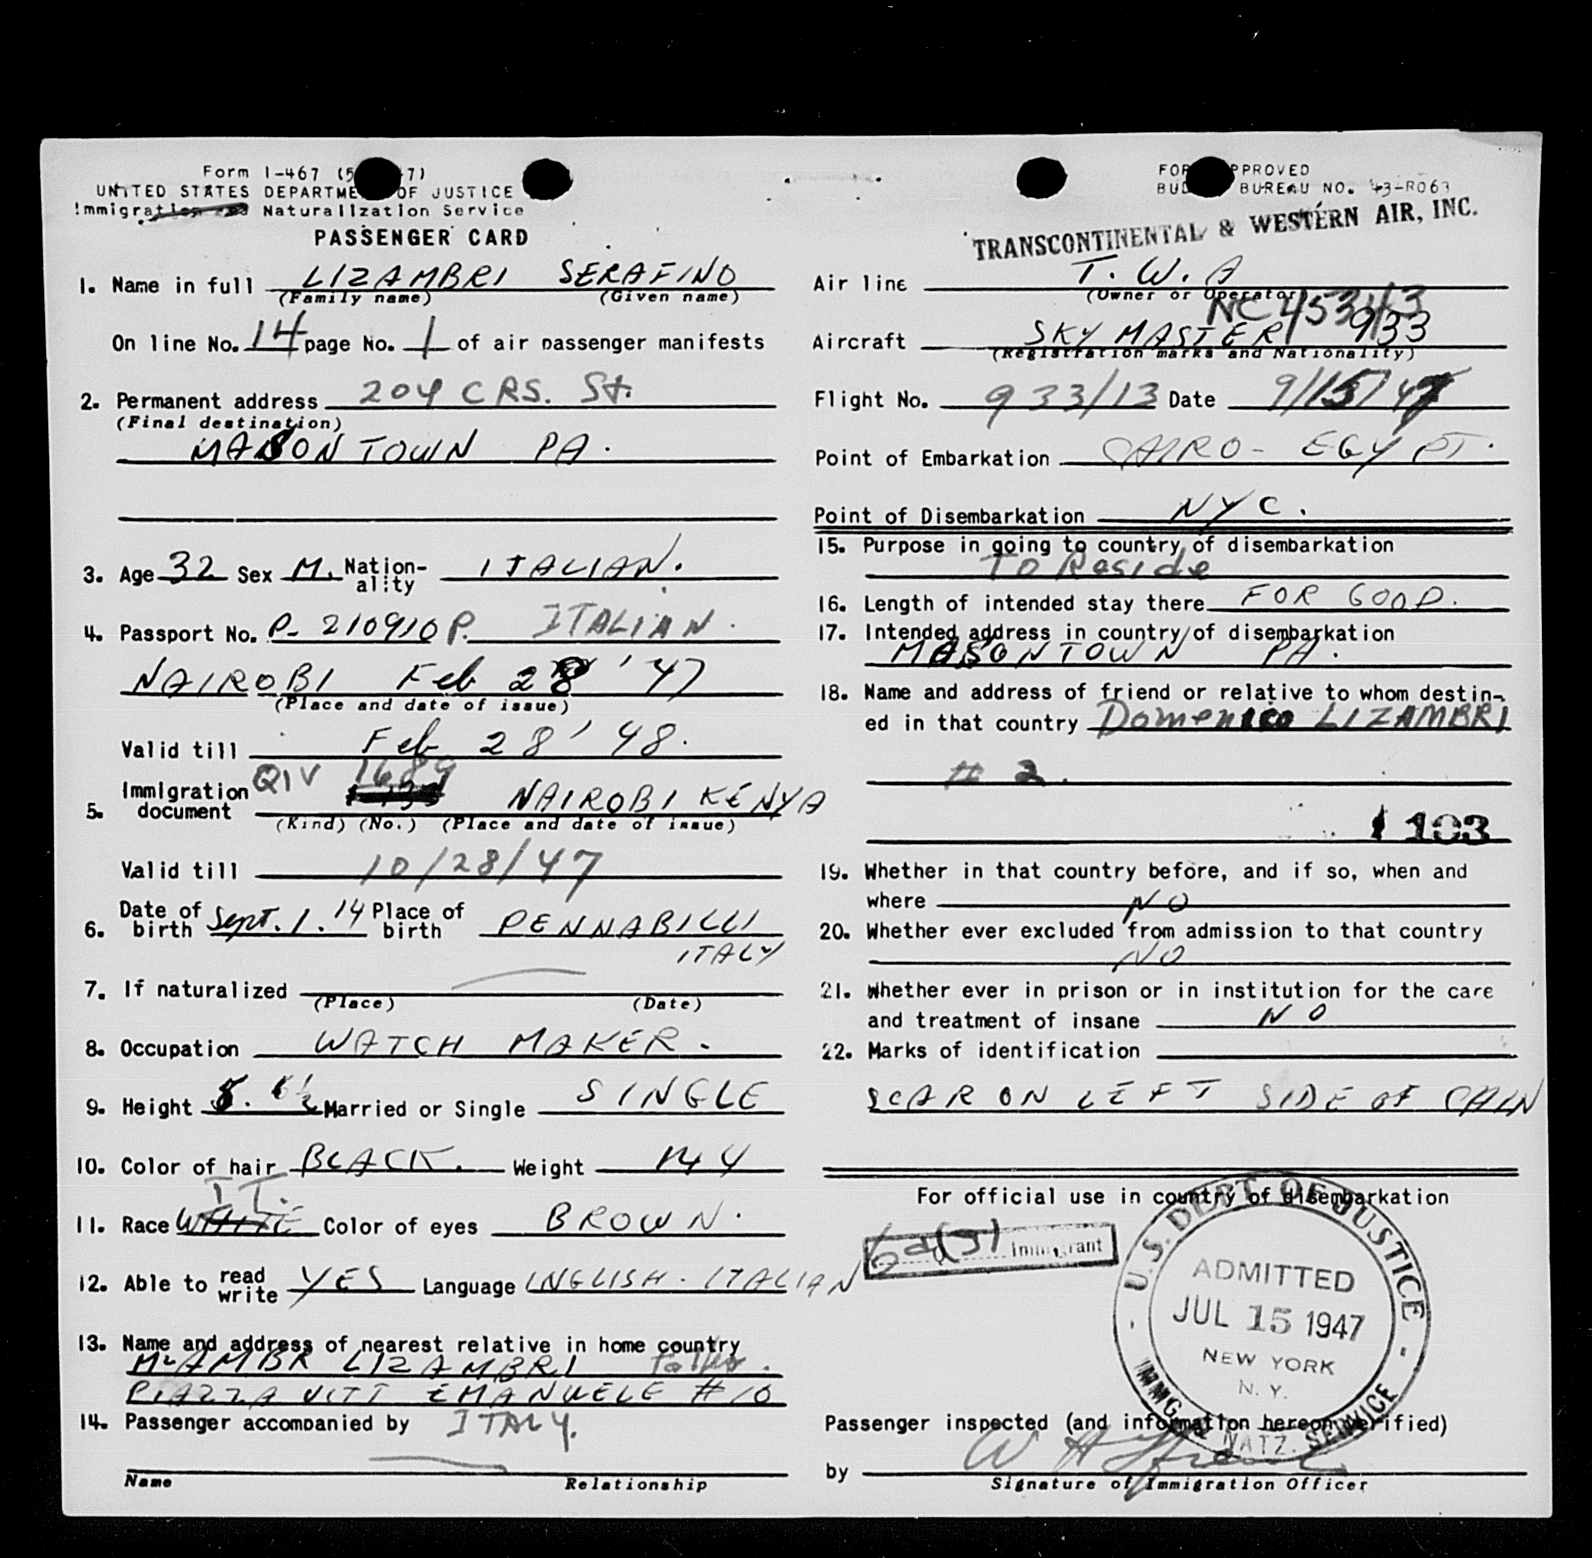 Form I-467 (5 7)
UNITED STATES DEPARTME OF JUSTICE
Immigration and Naturalization Service
PASSENGER CARD
1. Name in full LIZAMBRI SERAFINO
(Family name) (Given name)
On line No. 14 page No. 1 of air passenger manifests
2. Permanent address 204 CRS. St.
(Final destination)
MASONTOWN PA.
3. Age 32 Sex M. Nation-ality ITALIAN.
4. Passport No. P- 210910 P. ITALIAN.
NAIROBI Feb 28 '47
(Place and date of issue)
Valid till Feb 28' 48.
5. Immigration document QIV 1689 NAIROBI KENYA
(Kind) (No.) (Place and date of issue)
Valid till 10/28/47
6. Date of birth Sept. 1. 14 Place of birth PENNABILLI
ITALY
7. If naturalized
(Place) (Date)
8. Occupation WATCH MAKER.
9. Height 5. 6½ Married or Single SINGLE
10. Color of hair BLACK. Weight 144
IT.
11. Race WHITE Color of eyes BROWN.
12. Able to read write YES Language INGLISH. ITALIAN
13. Name and address of nearest relative in home country
LIZAMBRI
PIAZZA VITT EMANUELE #10
14. Passenger accompanied by ITALY.
Name Relationship
FOR PPROVED
BUD BUREAU NO. 43-R063
TRANSCONTINENTAL & WESTERN AIR, INC.
Air line T. W. A
(Owner or Operator)
Aircraft SKY MASTER 933
(Registration marks and Nationality)
Flight No. 933/13 Date 9/15/47
Point of Embarkation CAIRO- EGYPT.
Point of Disembarkation NYC.
15. Purpose in going to country of disembarkation
To Reside
16. Length of intended stay there FOR GOOD.
17. Intended address in country of disembarkation
MASONTOWN PA.
18. Name and address of friend or relative to whom destin-
ed in that country Domenico LIZAMBRI
# 2.
103
19. Whether in that country before, and if so, when and
where NO
20. Whether ever excluded from admission to that country
NO
21. Whether ever in prison or in institution for the care
and treatment of insane NO
22. Marks of identification
SCAR ON LEFT SIDE OF CHIN
For official use in country of disembarkation
Immigrant
U.S. DEPT. OF JUSTICE
ADMITTED
JUL 15 1947
NEW YORK
N. Y.
IMMIG. & NATZ. SERVICE
Passenger inspected (and information hereon verified)
by
Signature of Immigration Officer